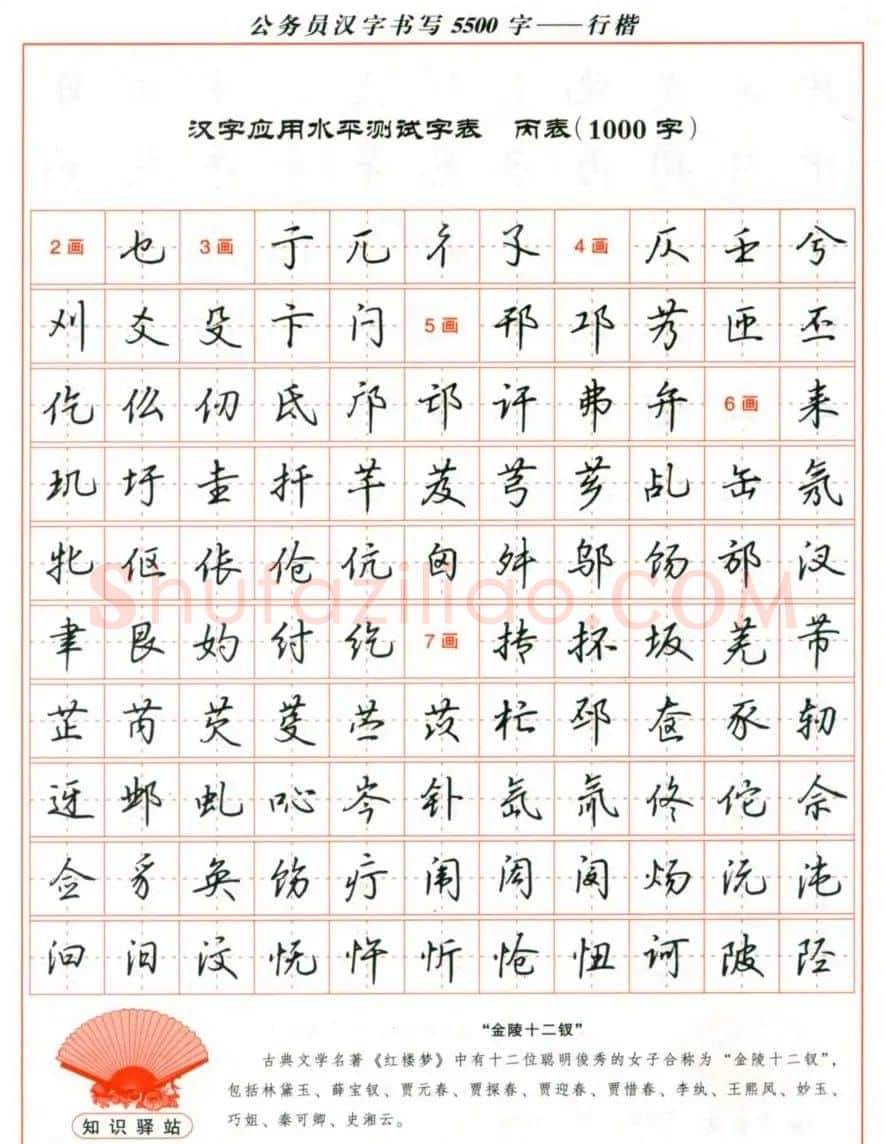 公务员汉字书写 5500 字——行楷
汉字应用水平测试字表 丙表(1000 字)
2画 乜 3画 亍 兀 彳 孓 4画 仄 壬 兮
刈 爻 殳 卞 闩 5画 邗 邛 艿 匝 丕
仡 仫 仞 氐 邝 邙 讦 弗 弁 6画 耒
玑 圩 圭 扦 芊 芨 芎 芗 乩 缶 氖
牝 伛 伥 伧 伉 囟 舛 邬 饧 邡 汊
聿 艮 妁 纣 纥 7画 抟 抔 坂 芫 芾
芷 芮 芟 杧 邳 奁 豕 轫
迓 邺 虬 吣 岑 钋 氙 氚 佟 佗 佘
佥 豸 奂 饬 疔 闱 闳 炀 沅 沌
汩 汨 汶 怃 忤 忻 怆 忸 诃 陂 陉
Shufaziliao.COM
“金陵十二钗”
古典文学名著《红楼梦》中有十二位聪明俊秀的女子合称为“金陵十二钗”，
包括林黛玉、薛宝钗、贾元春、贾探春、贾迎春、贾惜春、李纨、王熙凤、妙玉、
巧姐、秦可卿、史湘云。
知识驿站